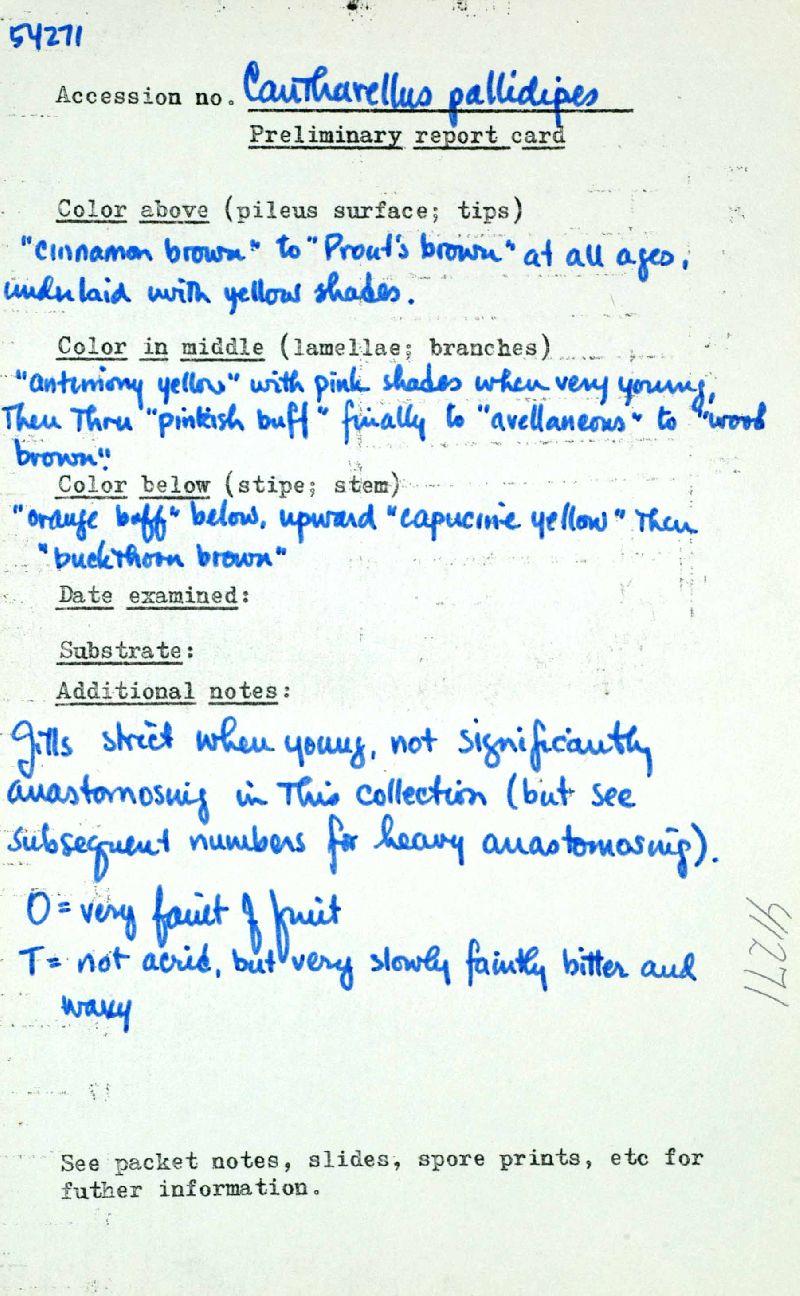 54271
Accession no. Cantharellus pallidipes
Preliminary report card
Color above (pileus surface; tips)
"cinnamon brown" to "Prout's brown" at all ages,
underlaid with yellow shades.
Color in middle (lamellae; branches)
"antimony yellow" with pink shades when very young,
Then Thru "pinkish buff" finally to "avellaneous" to "wood
brown".
Color below (stipe; stem)
"orange buff" below, upward "capucine yellow" Then
"buckthorn brown"
Date examined:
Substrate:
Additional notes:
Gills strict when young, not significantly
anastomosing in This collection (but see
subsequent numbers for heavy anastomosing).
O = very faint of fruit
T = not acrid, but very slowly faintly bitter and
waxy
See packet notes, slides, spore prints, etc for
futher information.